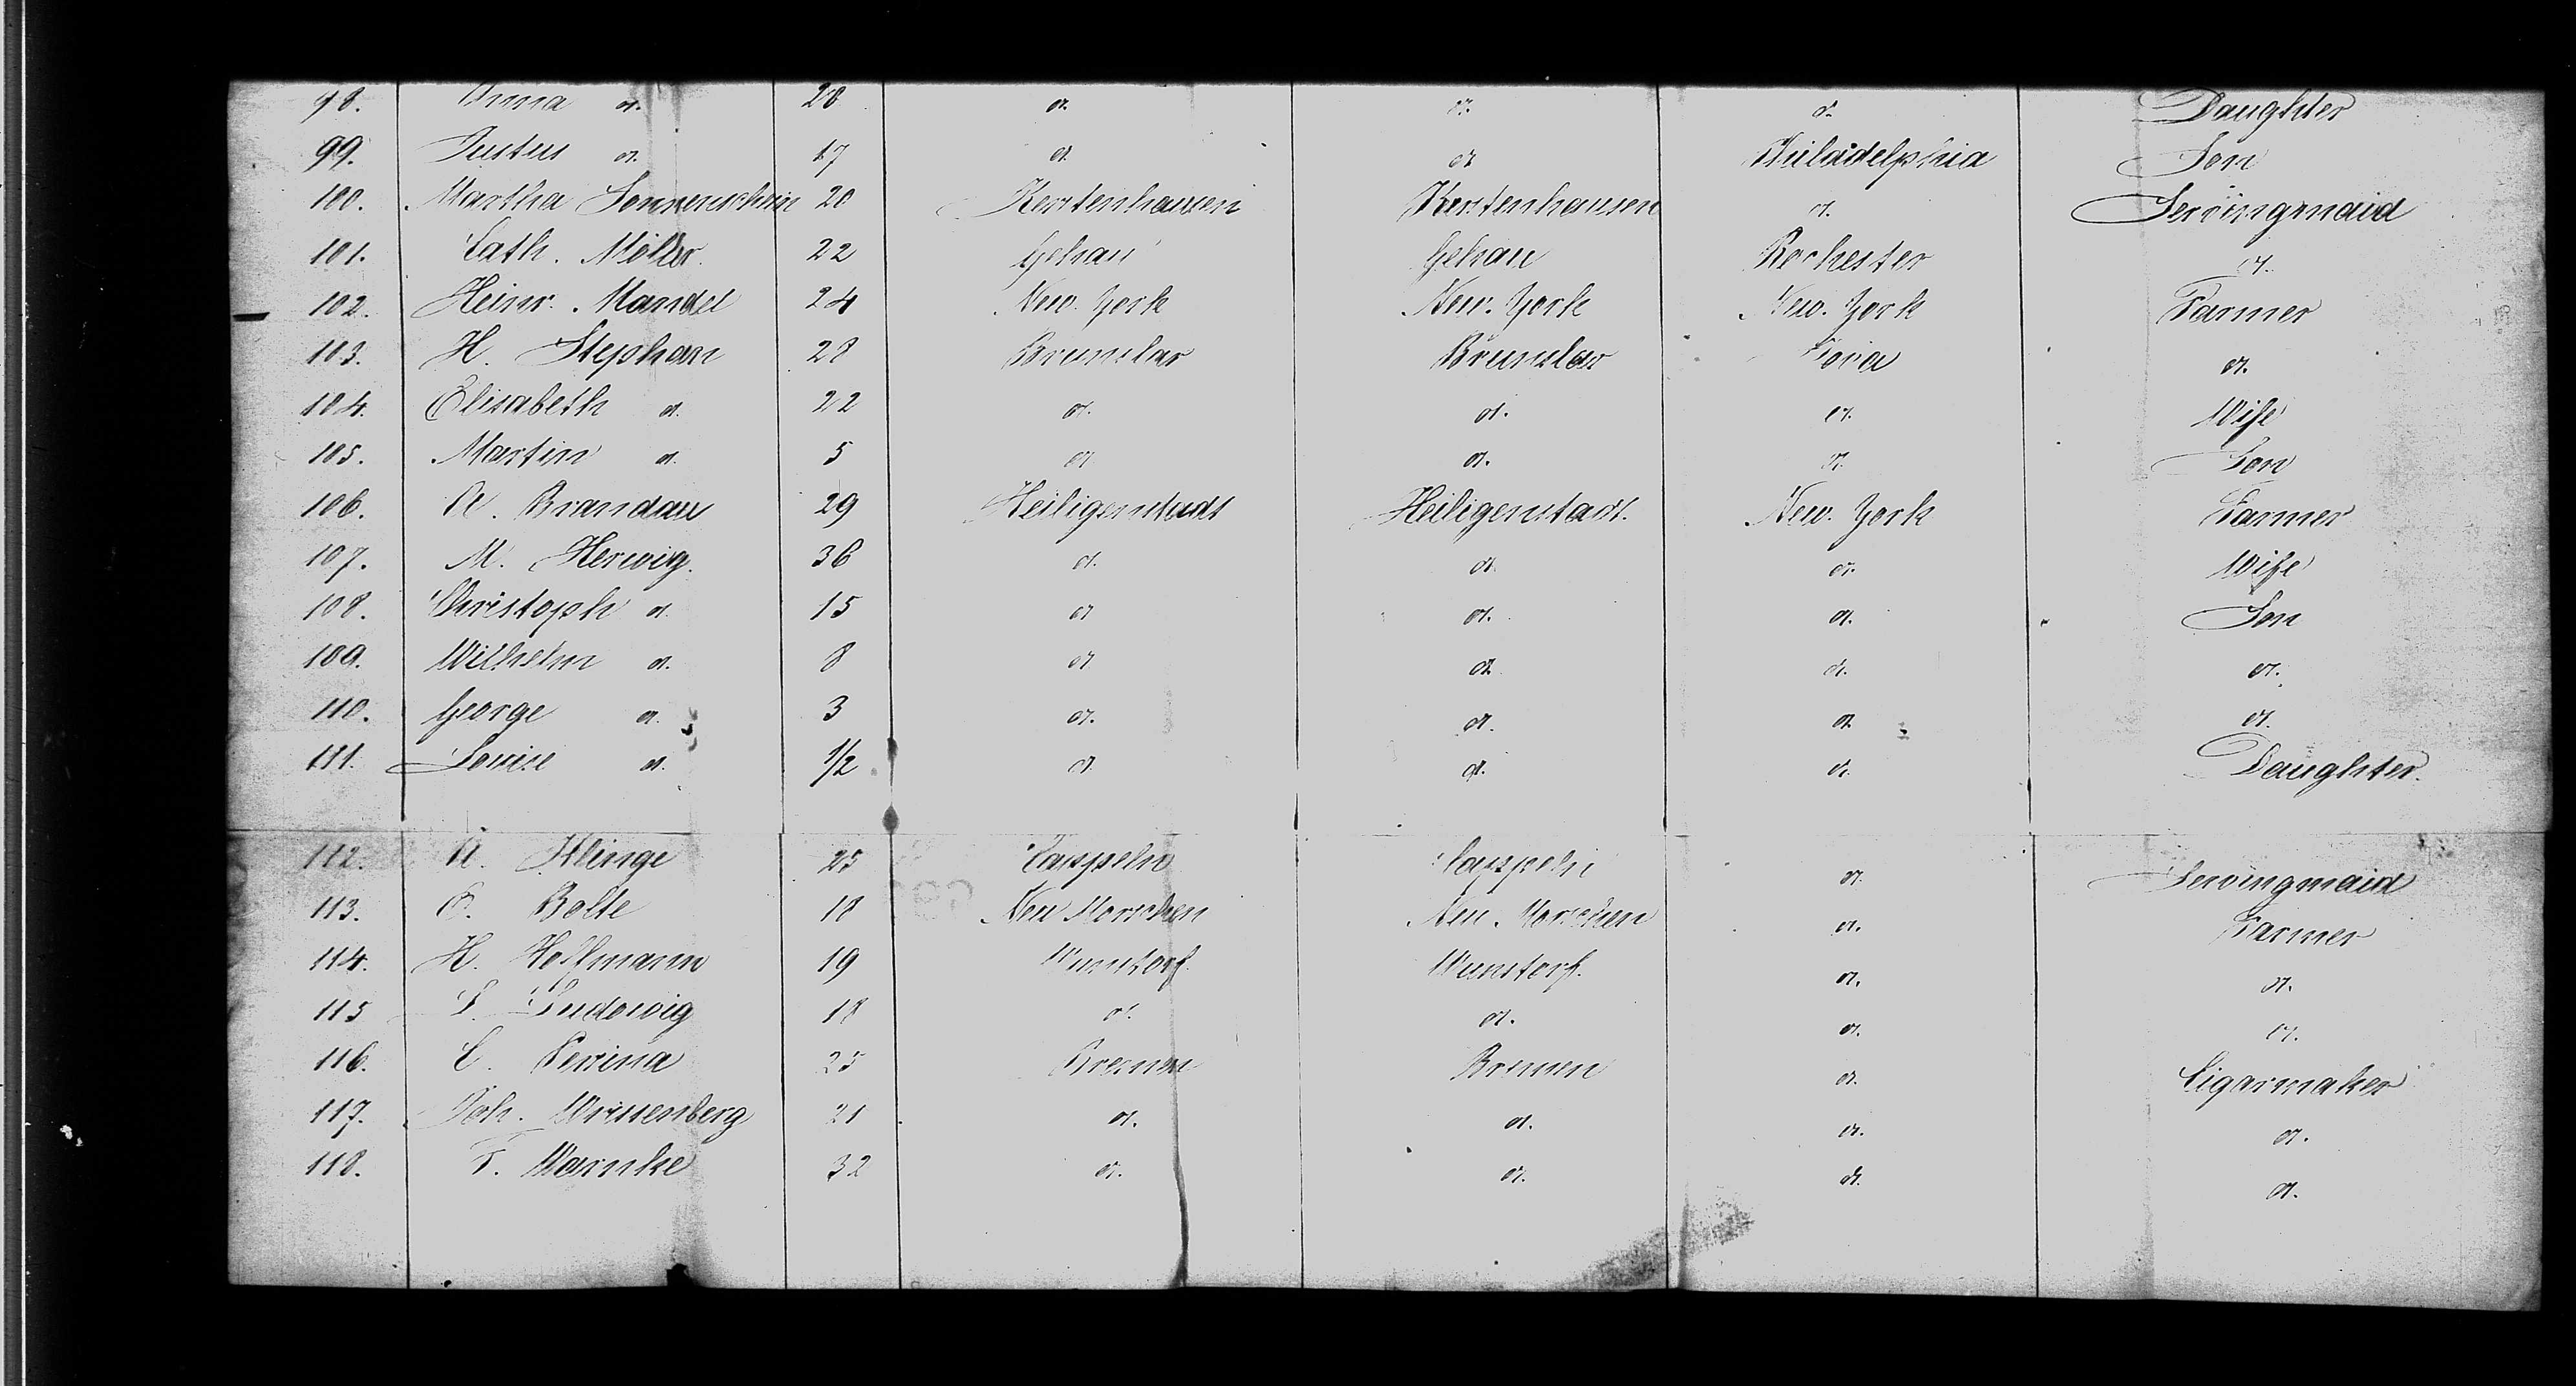 98. Anna d. 28 d. d. d. Daughter
99. Justus d. 17 d. d. Philadelphia Son
100. Martha Sonnenschein 20 Kerstenhausen Kerstenhausen d. Servingmaid
101. Cath. Möller 22 Gehau Gehau Rochester d.
102. Heinr. Mandel 24 New. York New. York New. York Farmer
103. H. Stephan 28 Brunslar Brunslar d.
104. Elisabeth d. 22 d. d. d. Wife
105. Martin d. 5 d. d. d. Son
106. A. Brandau 29 Heiligenstadt Heiligenstadt. New. York Farmer
107. M. Herwig. 36 d. d. d. Wife
108. Christoph d. 15 d. d. d. Son
109. Wilhelm d. 8 d. d. d. d.
110. George d. 3 d. d. d. d.
111. Louise d. 1/2 d. d. d. Daughter.
112. A. Klinge 25 Cappeln Cappeln d. Servingmaid
113. Bolte 18 Neu Morschen Neu. Morschen d. Farmer
114. H. Hoffmann 19 Wunstorf. Wunstorf. d. d.
115 L. Ludowig 18 d. d. d. d.
116. C. 25 Bremen Bremen d. Cigarmaker
117. Joh. Wissenberg 21 d. d. d. d.
118. F. Warnke 32 d. d. d. d.